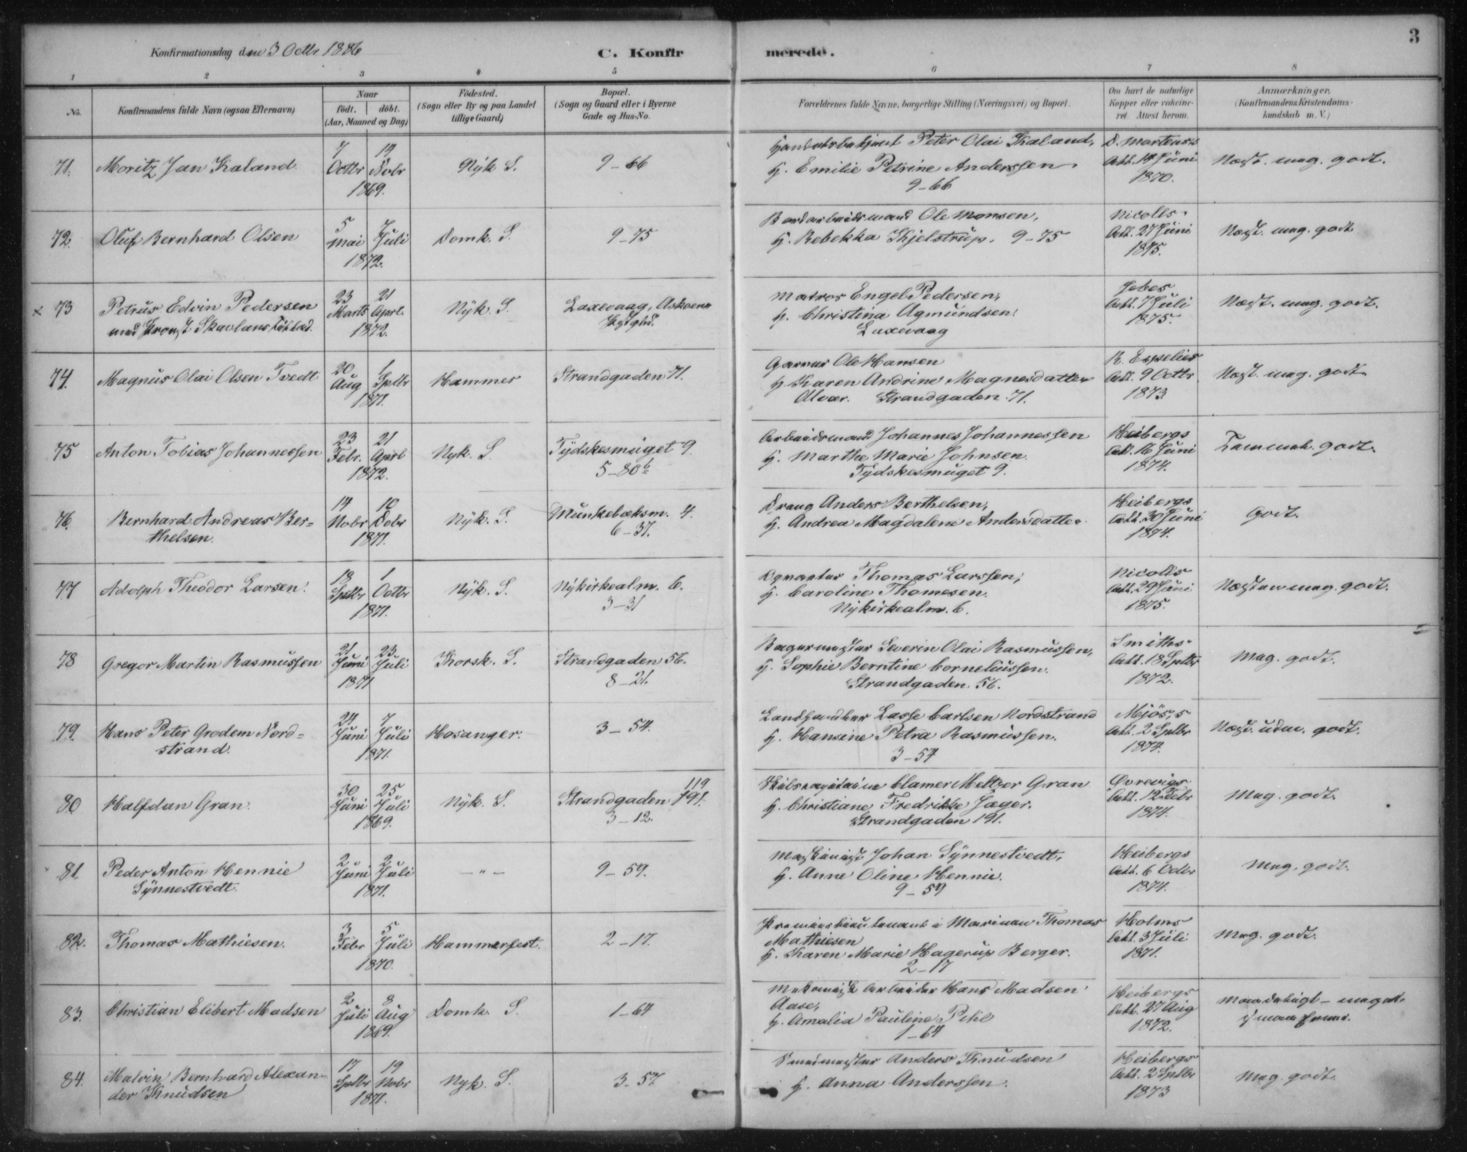 3
Konfirmationsdag den 3 Octbr 1886
C. Konfirmerede.
1 2 3 4 5 6 7 8
No.
Konfirmandens fulde Navn (ogsaa Efternavn)
Naar
født. døbt.
(Aar, Maaned og Dag)
Fødested.
(Sogn eller By og paa Landet
tillige Gaard)
Bopæl.
(Sogn og Gaard eller i Byerne
Gade og Hus-No.
Forældrenes fulde Navne, borgerlige Stilling (Næringsvei) og Bopæl.
Om havt de naturlige
Kopper eller vakcine-
ret. Attest herom.
Anmærkninger.
(Konfirmandens Kristendoms-
kundskab m. V.)
71. Moritz Jan Kaland
7 Octbr 19 Novbr
1869.
Nyk. S.
9-66
Peter Olai Kaland,
H. Emilie Petrine Anderssen
9-66
Att. 14 Juni
1870.
Næst. mag. godt.
72. Oluf Bernhard Olsen
5 Mai 7 Juli
1872.
Domk. S.
9-75
Ole Monsen,
H. Rebekka Kjelstrup. 9-75
Nicolls
Att. 27 Juni
1875.
Næst. mag. godt.
x 73 Petrus Edvin Pedersen
23 Marts 21 April
1872.
Nyk. S.
Laxevaag, Askøens
Matros Engel Pedersen,
H. Christina Agmundsen.
Laxevaag
Att. 7 Juli
1875.
Næst. mag. godt.
74. Magnus Olai Olsen Tvedt
20 Aug 1 Sptbr
1871.
Hammer
Strandgaden 71.
Ole Hansen
H. Karen Andrine Magnesdatter
Strandgaden 71.
Att. 9 Octbr
1873
Næst. mag. godt
75 Anton Tobias Johannessen
23 Febr. 21 April
1872.
Nyk. S
Tydskesmuget 9
5-80b
Arbeidsmand Johannes Johannessen
H. Marthe Marie Johnsen.
Tydskesmuget 9.
Heibergs
Att. 16 Juni
1874.
Temmel. godt.
76 Bernhard Andreas Ber-
thelsen.
19 Novbr 10 Decbr
1871.
Nyk. S.
Munkebæksm. 4.
6-37.
Anders Berthelsen,
H. Andrea Magdalene Andersdatter
Heibergs
Att. 30 Juni
1874.
Godt.
77 Adolph Theodor Larsen.
13 Sptbr 1 Octbr
1871.
Nyk. S.
Nykirkealm. 6.
3-31
Thomas Larssen,
H. Caroline Thomesen.
Nykirkealm. 6.
Nicolls
Att. 29 Juni
1875.
Næsten mag. godt.
78 Gregor Martin Rasmussen
21 Juni 23 Juli
1871
Korsk. S.
Strandgaden 56.
8-21.
Bagermester Severin Olai Rasmussen,
H. Sophie Berntine Corneliussen.
Strandgaden 56.
Smiths
Att. 18 Sptbr
1872.
Mag. godt.
79. Hans Peter Grodem Nord-
strand.
24 Juni 7 Juli
1871.
Hosanger.
3-54.
Landhandler Lasse Carlsen Nordstrand
H. Hansine Petra Rasmussen.
3-54
Att. 2 Sptbr
1874.
Næst. godt.
80 Halfdan Gran.
30 Juni 25 Juli
1869.
Nyk. S.
119
Strandgaden 191.
3-12.
Skibscapitain Clamer Meltzer Gran
H. Christiane Fredrikke Jager.
Strandgaden 191.
Att. 12 Febr
1874.
Mag. godt.
81. Peder Anton Hennie
Synnestvedt.
2 Juni 2 Juli
1871.
- " -
9-59.
Maskinist Johan Synnestvedt,
H. Anne Oline Hennie.
9-59
Heibergs
Att. 6 Octbr
1874.
Mag. godt.
82. Thomas Mathiesen.
3 Febr 5 Juli
1870.
Hammerfest.
2-17.
Premierlieutenant i Marinen Thomas
Mathiesen
H. Karen Marie Hagerup Berger.
2-17
Holms
Att. 3 Juli
1871.
Mag. godt.
83. Christian Elibert Madsen
2 Juli 8 Aug
1869.
Domk. S.
1-64
Hans Madsen
Aase,
H. Amalia Pauline
1-64
Heibergs
Att. 27 Aug
1872.
84. Malvin Bernhard Alexan-
der Knudsen
17 Sptbr 19 Novbr
1871.
Nyk. S.
3-57
Anders Knudsen
H. Anna Anderssen.
Heibergs
Att. 2 Sptbr
1873
Mag. godt.